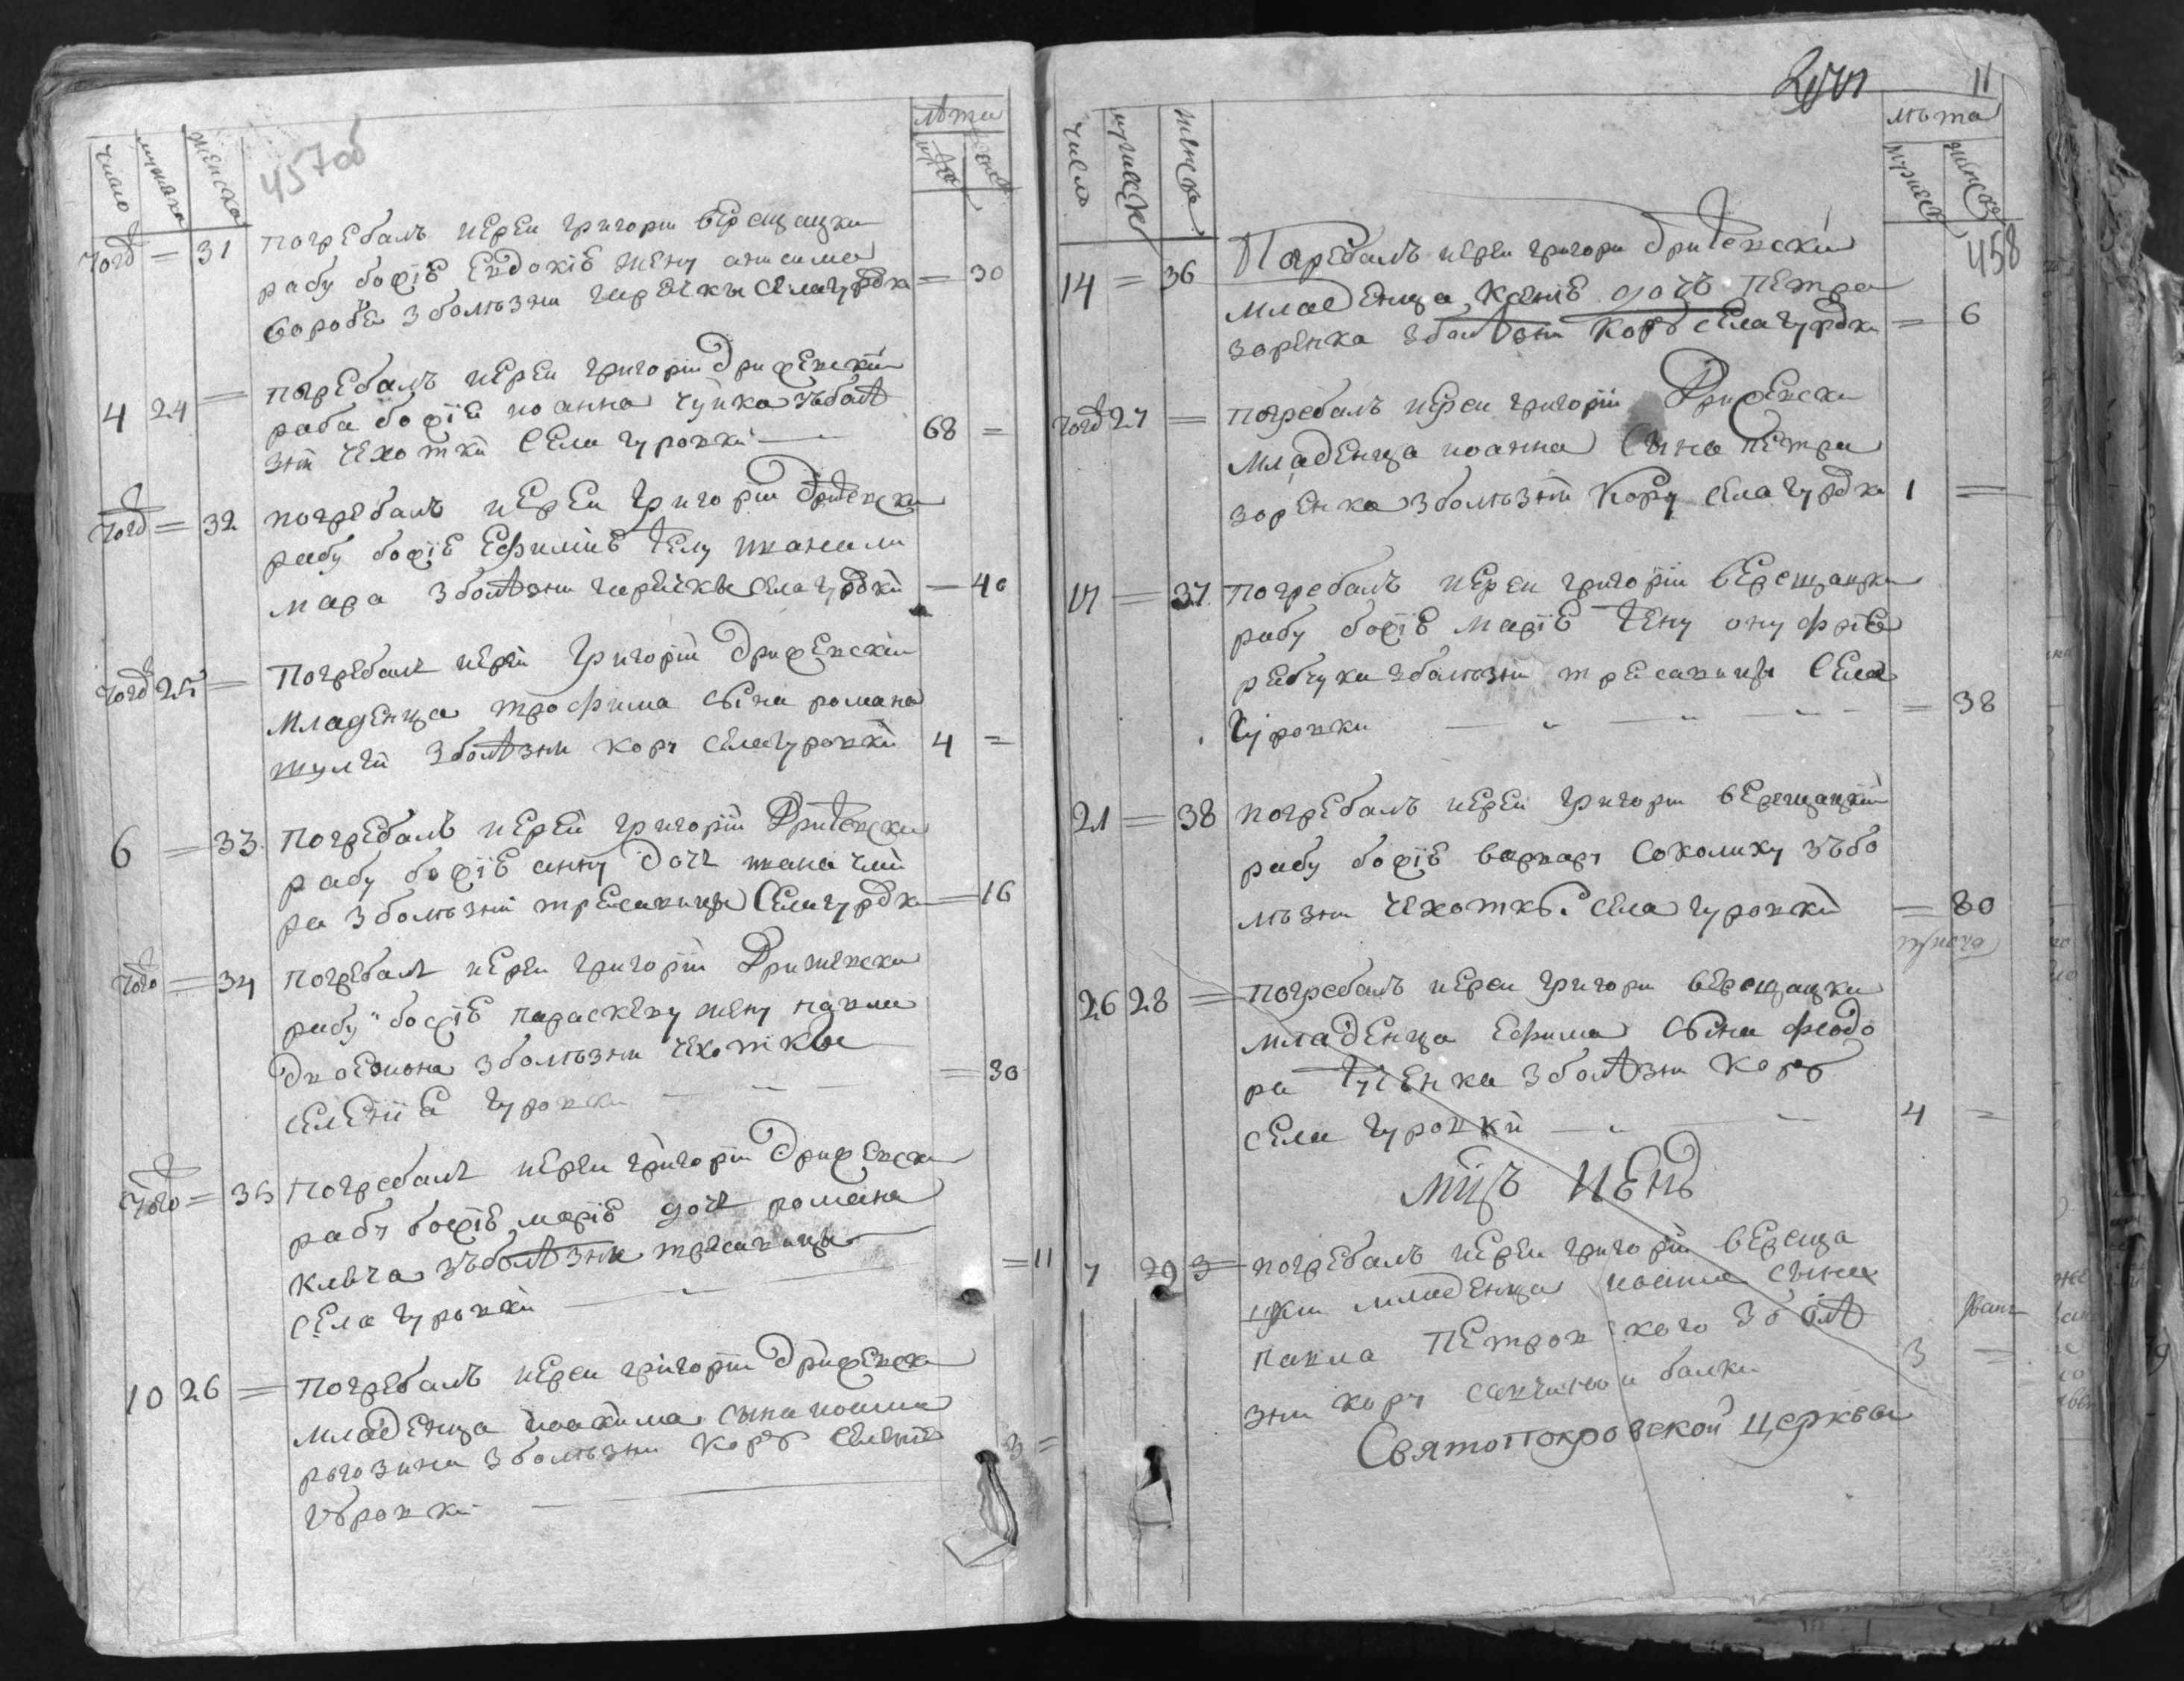 число мужска женска
457об
лѣта
муж женс
тогд = 31 погребалъ иереи григории верещацки
рабу божіе Евдокіе жену анисима
вороба зболѣзни гарячкы села гуровки = 30
4 24 = погребалъ иереи григорій дрижевскій
раба божіе иоанна чуйка зъболѣ
зни чехотки села гуровки 68 =
тогд = 32 погребалъ иереи григорій дрижевски
рабу божіе Ефиміе жену
мара зболѣзни гарячкы села гуровки = 40
тогд 25 = Погребалъ иереи григорій дрижевскій
младенца трофима сына романа
зболѣзни кору села гуровкй 4 =
6 = 33 погребалъ иерей григорій дрижевски
рабу божіе анну дочъ
ра зболѣзни трясавици села гуровки = 16
того = 34 погребалъ иереи григорій дрижевски
рабу божіе параскеву жену павла
зболѣзни чехоткы
селеніе гуровки = 30
того = 35 погребалъ иереи григорій дрижевски
рабу божіе маріе дочъ романа
зъболѣзни трясавици
села гуровки = 11
10 26 = погребалъ иереи григорій дрижевски
младенца иоакима сына иоанна
рогозина зболѣзни кору селеніе
гуровки 3 =
11
число мужеск женска
лѣта
мужеск женско
458
14 = 36 Погребалъ иереи григори дрижевскй
младенца ксеніе дочъ петра
зоренка зболѣзни кору села гуровки = 6
тогд 27 = погребалъ иереи григорій дрижевски
младенца иоанна сына петра
зоренка зболѣзни кору села гуровки 1 =
17 = 37 погребалъ иереи григорій верещацки
рабу божіе маріе жену онуфріе
зболѣзни трясавици села
гуровки = 38
21 = 38 погребалъ иереи григори верещацкій
рабу божіе варвару соколиху зъбо
лѣзни чехоткы села гуровкй = 80
26 28 = погребалъ иереи григори верещацки
младенца Ефима сына феодо
ра зболѣзни кору
села гуровкй 4 =
мцъ
7 29 = погребалъ иереи григорій вереща
цки младенца иоанна сына
павла петровского зболѣ
зни кору балки 3 =
Святопокровской церквы